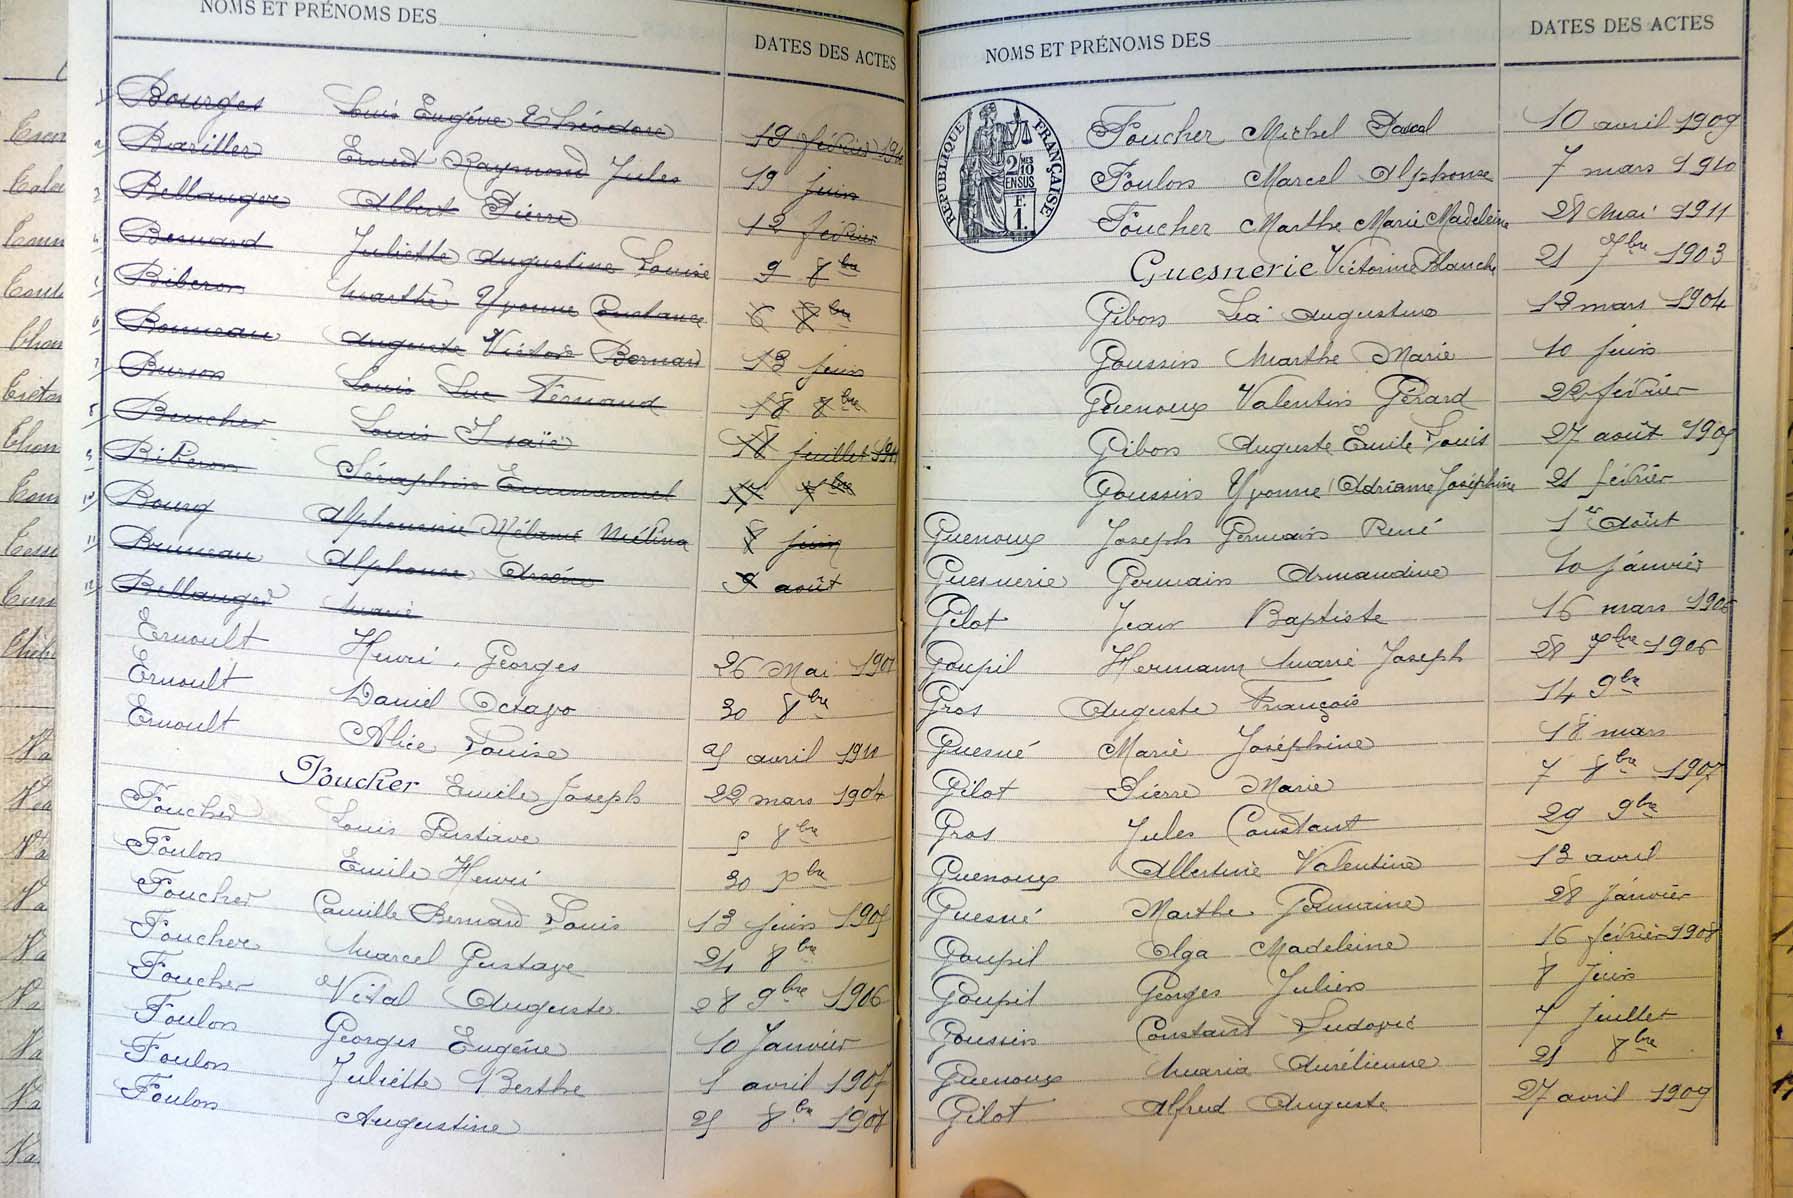 NOMS ET PRÉNOMS DES
DATES DES ACTES
1 Bourges Louis Eugène Théodore 19 février
2 Bariller Ernest Raymond Jules 19 juin
3 Bellanger Albert Pierre 12 février
4 Besnard Juliette Augustine Louise 9 8bre
5 Biberon Marthe Yvonne Constance 6 8bre
6 Bouveau Auguste Victor Bernard 13 juin
7 Burson Louis Luc Fernand 18 8bre
8 Boucher Louis Isaïe juillet
9 Biberon Séraphin Emmanuel
10 Bourg Alphonsine Mélanie Mélina 8 juin
11 Bruneau Alphonse Arsène 9 août
12 Bellanger Marie
Ernoult Henri Georges 26 Mai
Ernoult Daniel Octave 30 8bre
Ernoult Alice Louise 25 avril 1911
Foucher Emile Joseph 22 mars 1904
Foucher Louis Gustave 5 8bre
Foulon Emile Henri 30 Xbre
Foucher Camille Bernard Louis 13 juin 1905
Foucher Marcel Gustave 24 8bre
Foucher Vital Auguste 28 9bre 1906
Foulon Georges Eugène 10 Janvier
Foulon Juliette Berthe 1 avril 1907
Foulon Augustine 25 8bre 1908
NOMS ET PRÉNOMS DES
DATES DES ACTES
RÉPUBLIQUE FRANÇAISE
2 MES
10
EN SUS
F.
1.
Foucher Michel Pascal 10 avril 1909
Foulon Marcel Alphonse 7 mars 1910
Foucher Marthe Marie Madeleine 28 Mai 1911
Guesnerie Victorine Blanche 21 7bre 1903
Gibon Léa Augustine 12 mars 1904
Goussin Marthe Marie 10 juin
Guenoux Valentin Gérard 22 février
Gibon Auguste Emile Louis 27 août 1905
Goussin Yvonne Adrianne Joséphine 21 février
Guenoux Joseph Germain René 1er Août
Guesnerie Germain Armandine 10 janvier
Gilot Jean Baptiste 16 mars 1906
Goupil Hermann Marie Joseph 28 Xbre 1906
Gros Auguste François 14 9bre
Guesné Marie Joséphine 18 mars
Gilot Pierre Marie 7 8bre 1907
Gros Jules Constant 29 9bre
Guenoux Albertine Valentine 13 avril
Guesné Marthe Germaine 28 Janvier
Goupil Olga Madeleine 16 février 1908
Goupil Georges Julien 8 Juin
Goussin Constant Ludovic 7 Juillet
Guenoux Maria Aurélienne 21 8bre
Gilot Alfred Auguste 27 avril 1909